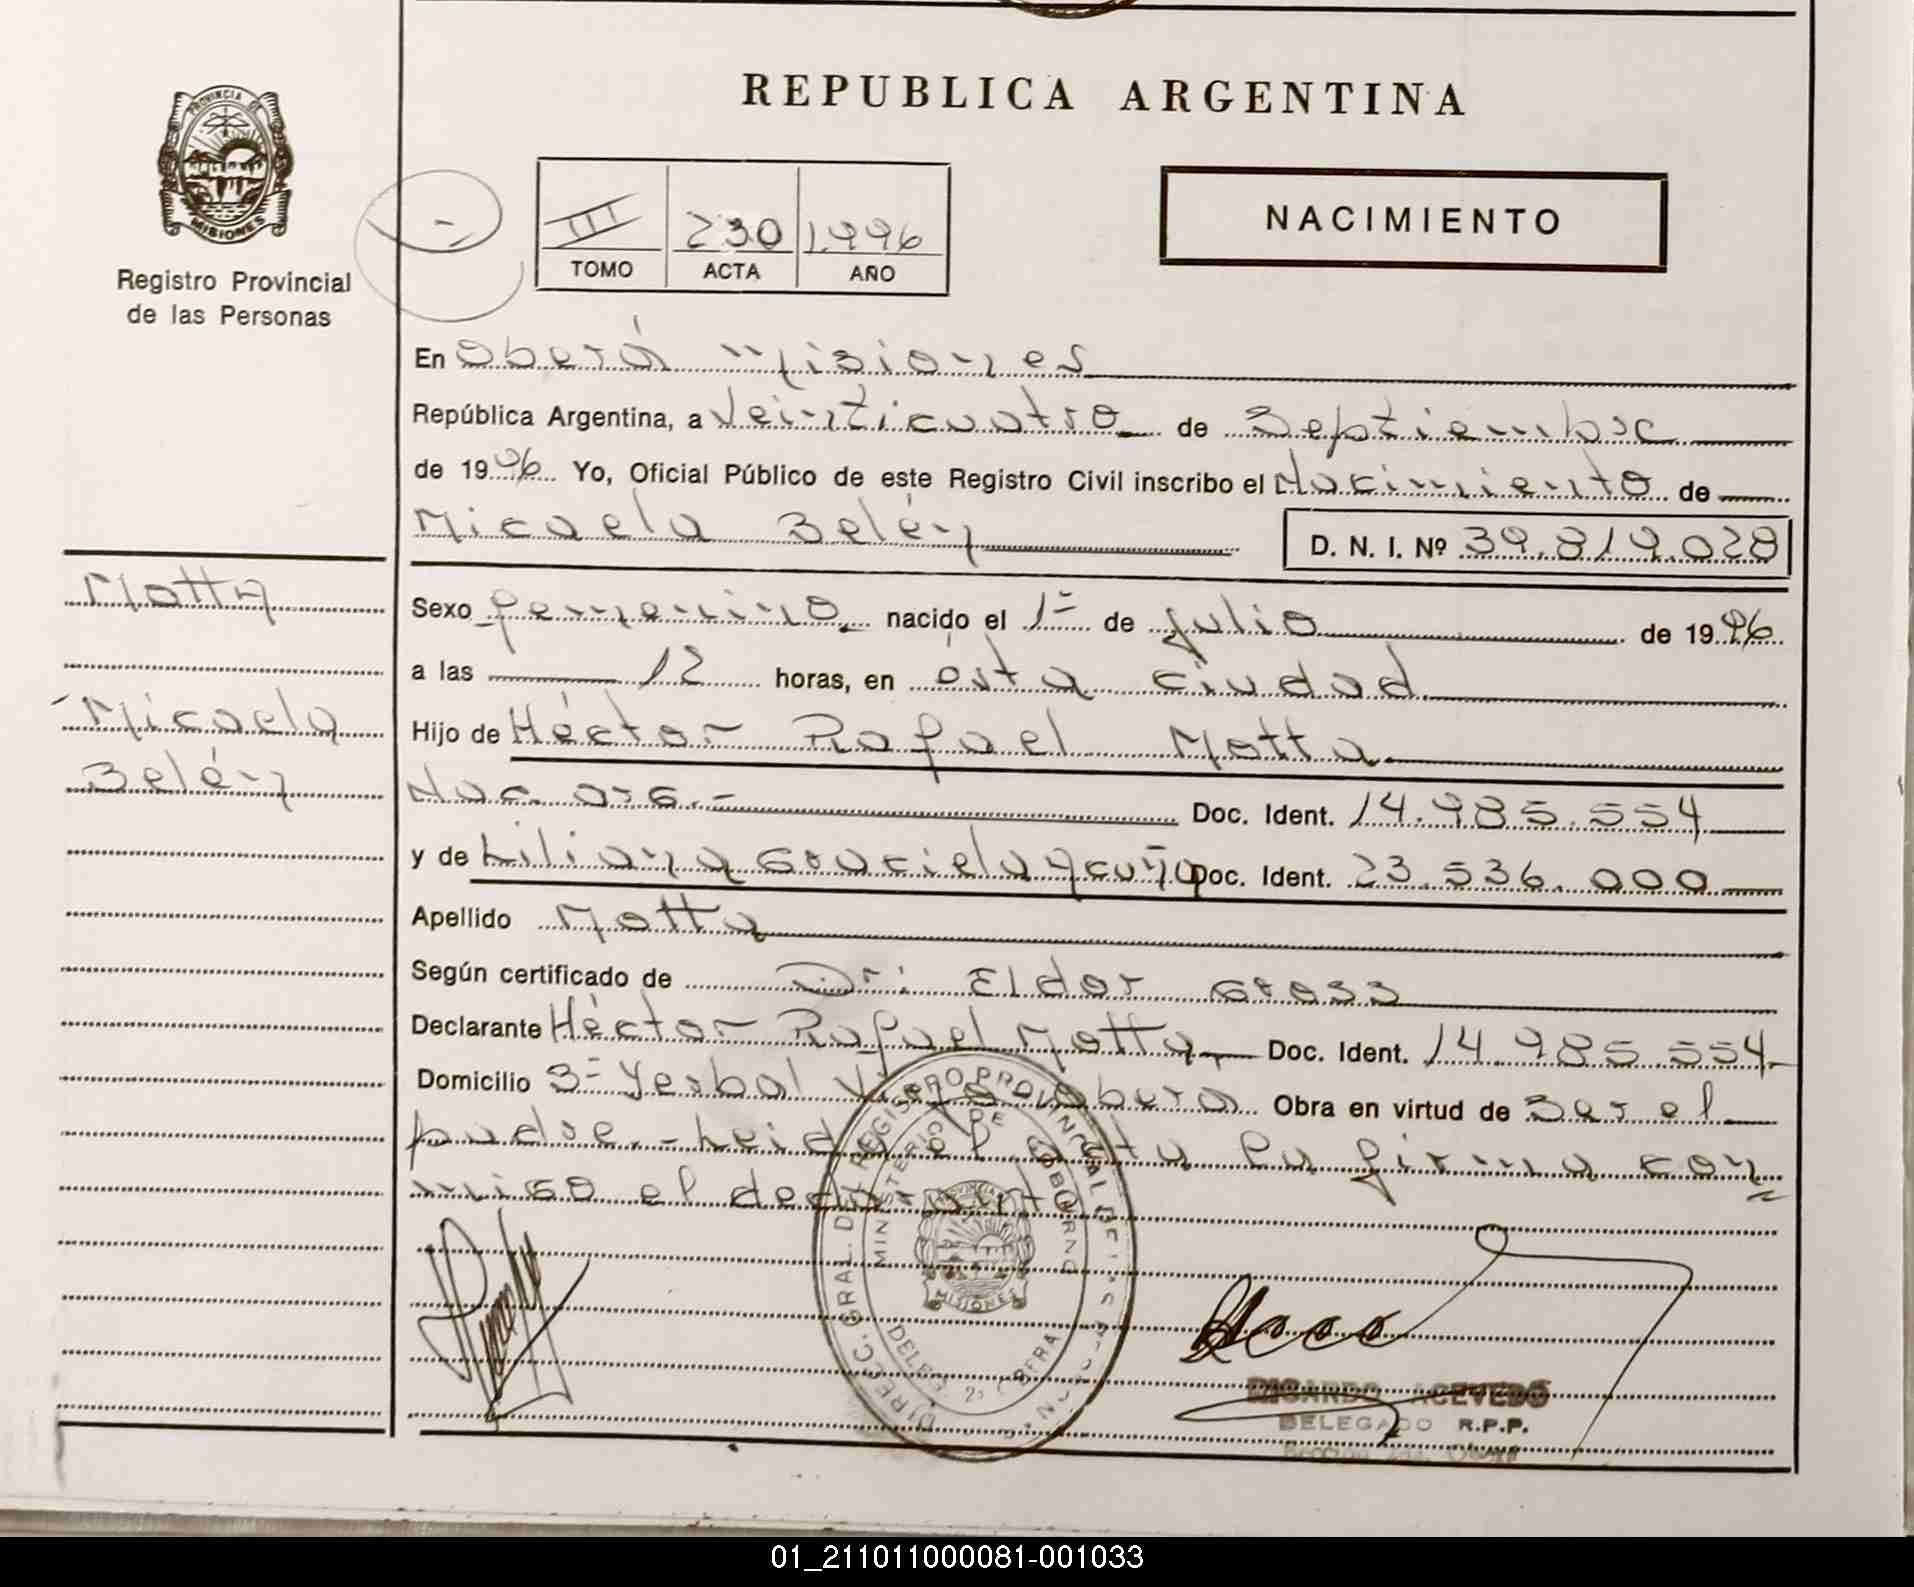 REPUBLICA ARGENTINA
PROVINCIA DE
MISIONES
Registro Provincial
de las Personas
III 230 1.996
TOMO ACTA AÑO
NACIMIENTO
En Oberá Misiones
República Argentina, a Veinticuatro de Septiembre
de 1996 Yo, Oficial Público de este Registro Civil inscribo el Nacimiento de
Micaela Belén D. N. I. Nº 39.819.028
Motta
Micaela
Belén
Sexo femenino nacido el 1º de julio de 1996
a las 12 horas, en ésta ciudad
Hijo de Héctor Rafael Motta
Nac. arg.- Doc. Ident. 14.985.554
y de Liliana Graciela Acuña Doc. Ident. 23.536.000
Apellido Motta
Según certificado de Dr: Eldor Gross
Declarante Héctor Rafael Motta Doc. Ident. 14.985.554-
Domicilio Yerbal Oberá Obra en virtud de ser el
padre.- Leida el acta la firma con
migo el declarante
DIRECC. GRAL. DEL REGISTRO PROVINCIAL DE LAS PERSONAS
MINISTERIO DE GOBIERNO
PROVINCIA
MISIONES
DELEG. 2ª OBERA
RICARDO ACEVEDO
DELEGADO R.P.P.
Sección 2da. Oberá
01_211011000081-001033